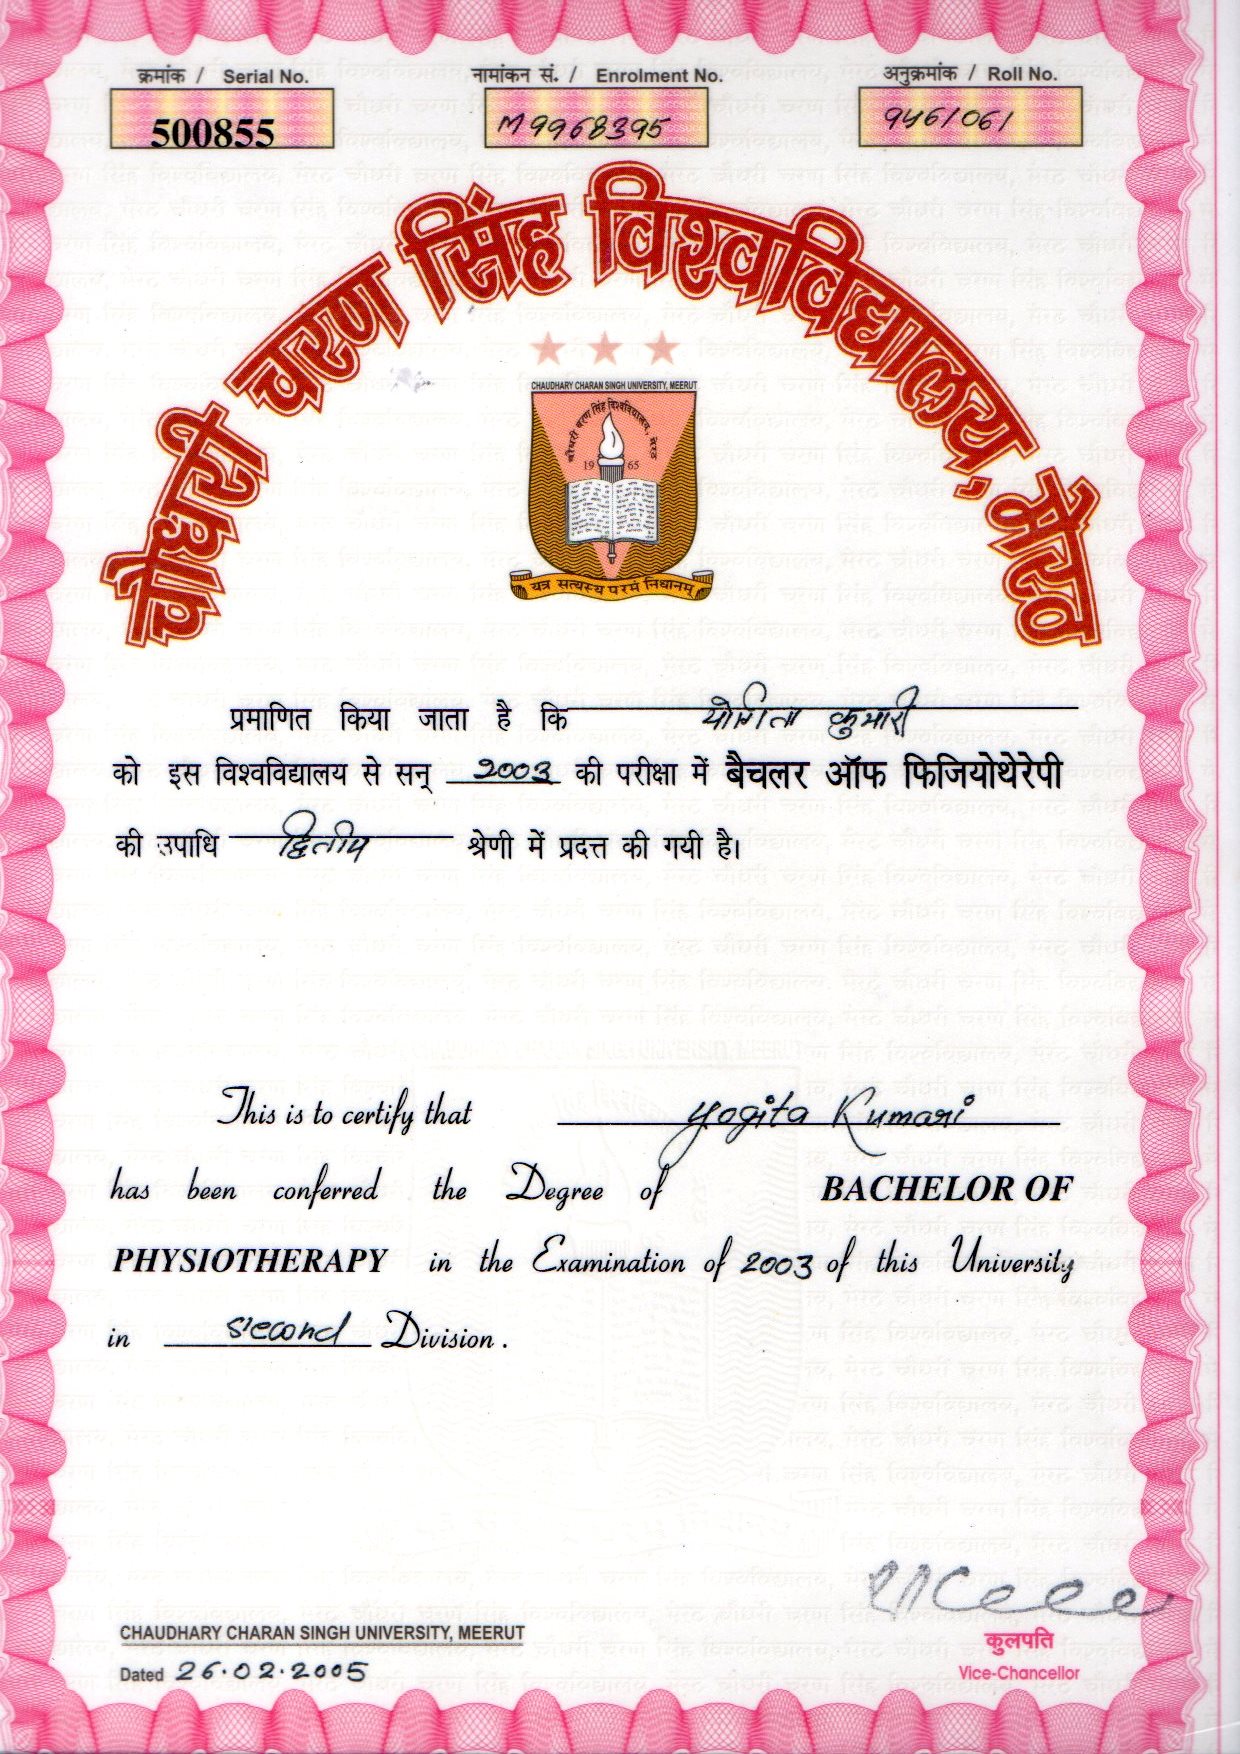 क्रमांक / Serial No.
नामांकन सं. / Enrolment No.
अनुक्रमांक / Roll No.
500855
M9968395
946/061
चौधरी चरण सिंह विश्वविद्यालय, मेरठ
CHAUDHARY CHARAN SINGH UNIVERSITY, MEERUT
चौधरी चरण सिंह विश्वविद्यालय, मेरठ
1965
यत्र सत्यस्य परमं निधानम्
प्रमाणित किया जाता है कि योगिता कुमारी
को इस विश्वविद्यालय से सन् 2003 की परीक्षा में बैचलर ऑफ फिजियोथेरेपी
की उपाधि द्वितीय श्रेणी में प्रदत्त की गयी है।
This is to certify that Yogita Kumari
has been conferred the Degree of BACHELOR OF
PHYSIOTHERAPY in the Examination of 2003 of this University
in second Division.
CHAUDHARY CHARAN SINGH UNIVERSITY, MEERUT
Dated 26.02.2005
कुलपति
Vice-Chancellor